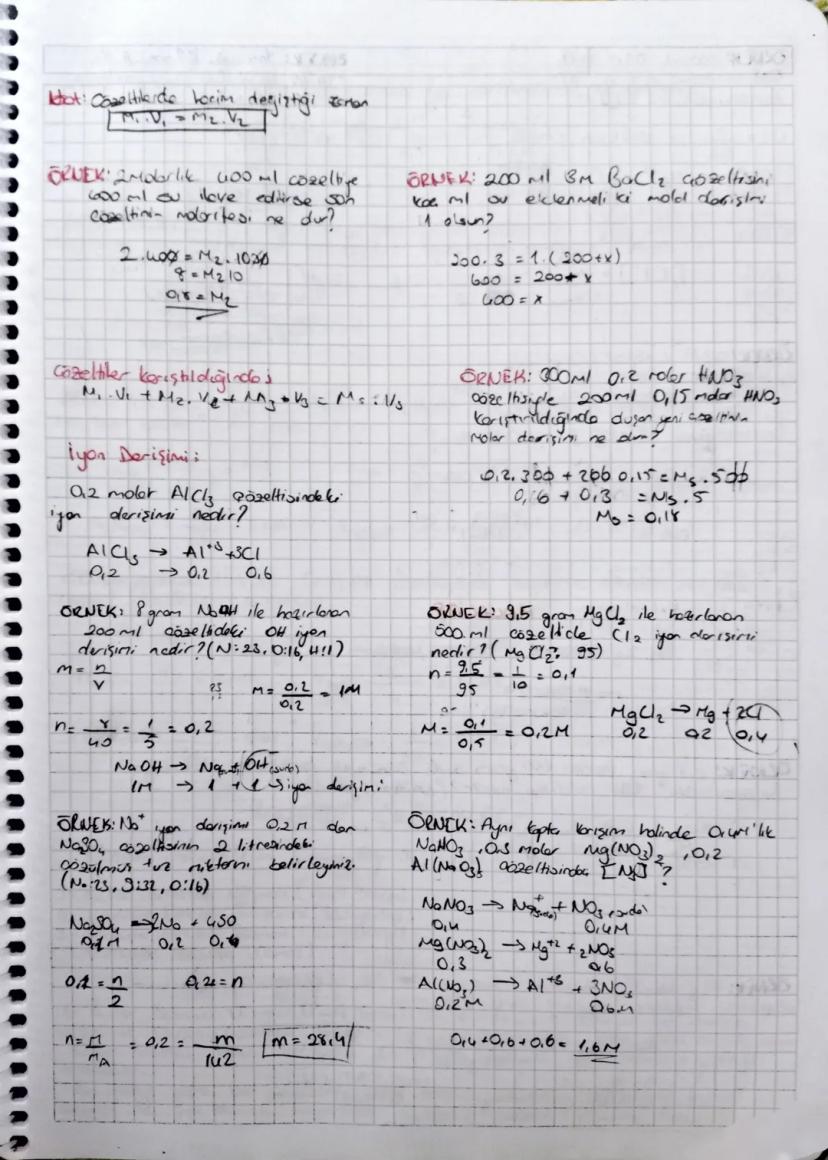 Not: Çözeltilerde hacim değiştiği zaman
M₁.V₁ = M₂.V₂
ÖRNEK: 2 Molarlık 400 ml çözeltiye
600 ml su ilave edilirse son
çözeltinin molaritesi ne dur?
2.400 = M₂.1000
8 = M₂10
0,8 = M₂
ÖRNEK: 200 ml 3M BaCl₂ çözeltisini
kaç ml su eklenmeli ki molal derişimi
1 olsun?
200.3 = 1.(200+x)
600 = 200+x
400 = x
Çözeltiler Karıştıldığında;
M₁.V₁ + M₂.V₂ + M₃.V₃ = Ms.Vs
ÖRNEK: 300ml 0,2 molar HNO₃
çözeltisiyle 200ml 0,15 molar HNO₃
karıştırıldığında oluşan yeni çözeltinin
molar derişimi ne olur?
0,2.300 + 200 0,15 = Ms.500
0,6 + 0,3 = Ms.5
Ms = 0,18
İyon Derişimi:
0,2 molar AlCl₃ çözeltisindeki
iyon derişimi nedir?
AlCl₃ → Al⁺³+3Cl
0,2 → 0,2 0,6
ÖRNEK: 8 gram NaOH ile hazırlanan
200ml çözeltideki OH iyon
derişimi nedir? (N:23, O:16, H:1)
M = n/V
M = 0,2/0,2 = 1M
n = 8/40 = 1/5 = 0,2
NaOH → Na + OH(suda)
1M → 1 + 1 → iyon derişimi
ÖRNEK: 9,5 gram MgCl₂ ile hazırlanan
500ml çözeltide Cl₂ iyon derişimi
nedir? (MgCl₂: 95)
n = 9,5/95 = 1/10 = 0,1
M = 0,1/0,5 = 0,2M
MgCl₂ → Mg + 2Cl
0,2 0,2 0,4
ÖRNEK: Na⁺ iyon derişimi 0,2M olan
Na₂SO₄ çözeltisinin 2 litresindeki
çözülmüş tuz miktarını belirleyiniz.
(Na:23, S:32, O:16)
Na₂SO₄ → 2Na + 4SO
0,1M 0,2
0,1 = n/2 0,2 = n
n = m/MA = 0,2 = m/142 m = 28,4
ÖRNEK: Aynı kapta karışım halinde 0,4M'lık
NaNO₃, 0,3 molar Mg(NO₃)₂, 0,2
Al(NO₃)₃ çözeltisinde ?
NaNO₃ → Na⁺(suda) + NO₃(suda)
0,4 0,4M
Mg(NO₃)₂ → Mg⁺² + 2NO₃
0,3 0,6
Al(NO₃) → Al⁺³ + 3NO₃
0,2M 0,6M
0,4+0,6+0,6 = 1,6M